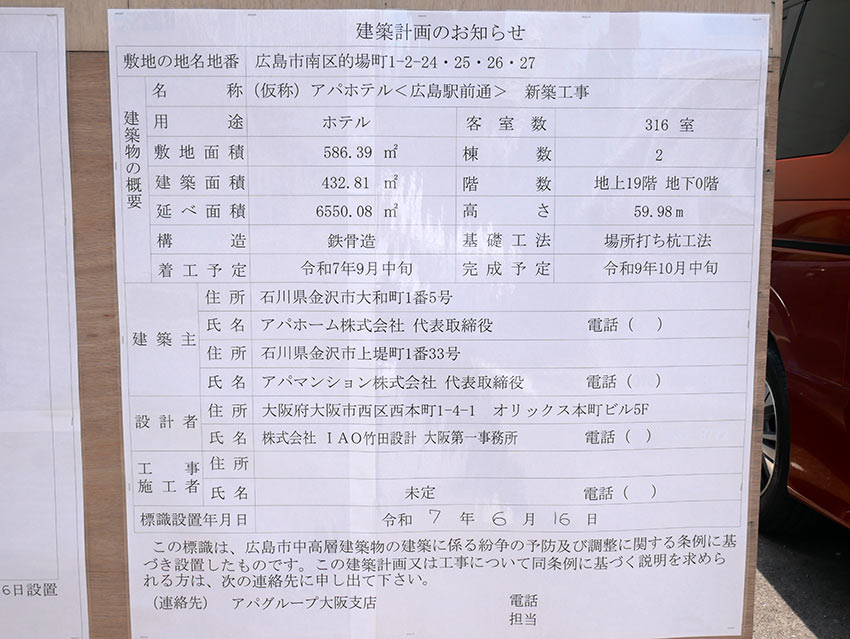 建築計画のお知らせ
敷地の地名地番 広島市南区的場町1-2-24・25・26・27
建築物の概要
名称 (仮称) アパホテル<広島駅前通> 新築工事
用途 ホテル 客室数 316 室
敷地面積 586.39 ㎡ 棟数 2
建築面積 432.81 ㎡ 階数 地上19階 地下0階
延べ面積 6550.08 ㎡ 高さ 59.98m
構造 鉄骨造 基礎工法 場所打ち杭工法
着工予定 令和7年9月中旬 完成予定 令和9年10月中旬
建築主
住所 石川県金沢市大和町1番5号
氏名 アパホーム株式会社 代表取締役 電話 ( )
住所 石川県金沢市上堤町1番33号
氏名 アパマンション株式会社 代表取締役 電話 ( )
設計者
住所 大阪府大阪市西区西本町1-4-1 オリックス本町ビル5F
氏名 株式会社 IAO竹田設計 大阪第一事務所 電話 ( )
工事施工者
住所
氏名 未定 電話 ( )
標識設置年月日 令和 7 年 6 月 16 日
この標識は、広島市中高層建築物の建築に係る紛争の予防及び調整に関する条例に基
づき設置したものです。この建築計画又は工事について同条例に基づく説明を求めら
れる方は、次の連絡先に申し出て下さい。
(連絡先) アパグループ大阪支店 電話
担当
6日設置